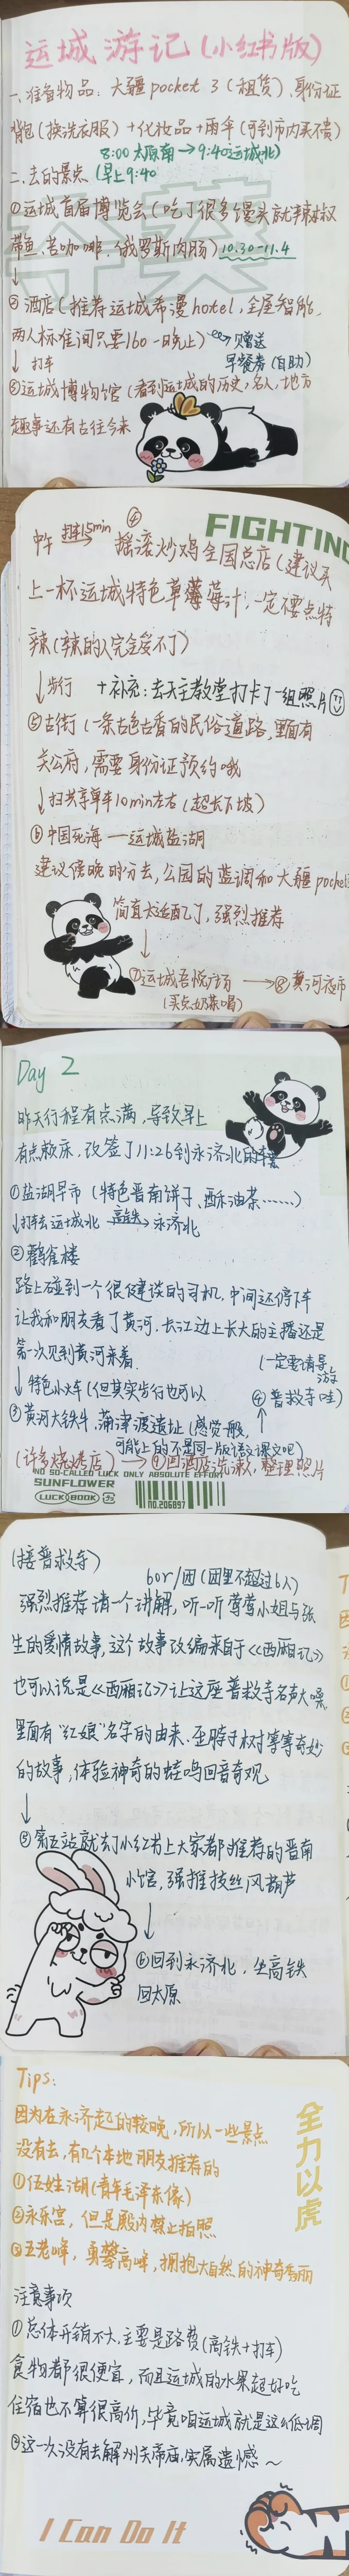 运城游记(小红书版)
一、准备物品:大疆pocket 3(租赁)、身份证
背包(换洗衣服)+化妆品+雨伞(可到市内买不贵)
8:00 太原南→9:40运城北)
二、去的景点(早上9:40
①运城首届博览会(吃了很多馒头就辣椒
带鱼、苦咖啡、俄罗斯肉肠)10.30-11.4
↓
②酒店(推荐运城希漫hotel,全屋智能,
两人标准间只要160一晚止)→赠送
↓打车 早餐券(自助)
③运城博物馆(看到运城的历史,名人,地方
趣事还有古往今来
④
中午 打车15min→ 摇滚炒鸡全国总店(建议买
FIGHTING
上一杯运城特色草莓莓汁,一定不要点特
辣(辣的人完全受不了)
↓步行 +补充:去天主教堂打卡了一组照片
⑤古街(一条古色古香的民俗道路,里面有
关公府,需要身份证预约哦
↓扫共享单车10min左右(超长下坡)
⑥中国死海——运城盐湖
建议傍晚时分去,公园的蓝调和大疆pocket
简直太适配了,强烈推荐
↓
⑦运城吾悦广场→⑧黄河夜市
(买点奶茶喝)
Day 2
昨天行程有点满,导致早上
有点赖床,改签了11:26到永济北的车票
①盐湖早市(特色晋南饼子、酥油茶……)
↓打车去运城北 高铁→永济北
②鹳雀楼
路上碰到一个很健谈的司机,中间还停下车
让我和朋友看了黄河,长江边上长大的主播还是
第一次见到黄河来着.
(一定要请导游
↓特色小火车(但其实步行也可以
④普救寺哇)
↑
③黄河大铁牛,蒲津渡遗址(感觉一般,
可能上的不是同一版语文课文吧)
(许多烧烤店)→④回酒店洗漱,整理照片
NO SO-CALLED LUCK ONLY ABSOLUTE EFFORT
SUNFLOWER
LUCK BOOK
NO.206897
(接普救寺)
60r/团(团里不超过6人)
强烈推荐请一个讲解,听一听莺莺小姐与张
生的爱情故事,这个故事改编来自于《《西厢记》
也可以说是《《西厢记》》让这座普救寺名声大噪
里面有"红娘"名字的由来、歪脖子树等等奇妙
的故事,体验神奇的蛙鸣回音奇观
↓
⑤第五站就去了小红书上大家都推荐的晋南
小馆,强推拔丝风葫芦
↓
⑥回到永济北,坐高铁
回太原
Tips:
因为在永济起的较晚,所以一些景点
没有去,有几个本地朋友推荐的
①伍姓湖(青年毛泽东像)
②永乐宫,但是殿内禁止拍照
③五老峰,勇攀高峰,拥抱大自然的神奇秀丽
全力以虎
注意事项
①总体开销不大,主要是路费(高铁+打车)
食物都很便宜,而且运城的水果超好吃
住宿也不算很高价,毕竟咱运城就是这么低调
②这一次没有去解州关帝庙,实属遗憾~
I Can Do It